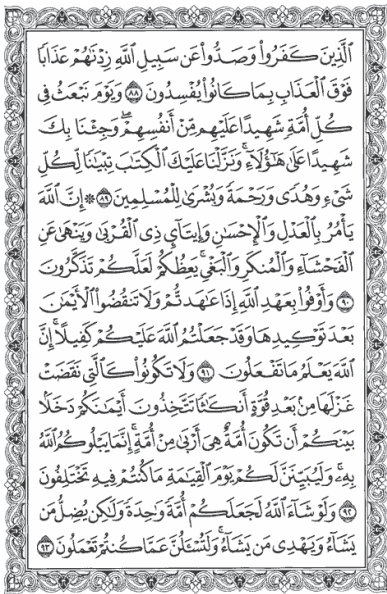 ٱلَّذِينَ كَفَرُواْ وَصَدُّواْ عَن سَبِيلِ ٱللَّهِ زِدْنَٰهُمْ عَذَابًا
فَوْقَ ٱلْعَذَابِ بِمَا كَانُواْ يُفْسِدُونَ ٨٨ وَيَوْمَ نَبْعَثُ فِى
كُلِّ أُمَّةٍ شَهِيدًا عَلَيْهِم مِّنْ أَنفُسِهِمْ ۖ وَجِئْنَا بِكَ
شَهِيدًا عَلَىٰ هَٰٓؤُلَآءِ ۚ وَنَزَّلْنَا عَلَيْكَ ٱلْكِتَٰبَ تِبْيَٰنًا لِّكُلِّ
شَىْءٍ وَهُدًى وَرَحْمَةً وَبُشْرَىٰ لِلْمُسْلِمِينَ ٨٩ ۞ إِنَّ ٱللَّهَ
يَأْمُرُ بِٱلْعَدْلِ وَٱلْإِحْسَٰنِ وَإِيتَآئِ ذِى ٱلْقُرْبَىٰ وَيَنْهَىٰ عَنِ
ٱلْفَحْشَآءِ وَٱلْمُنكَرِ وَٱلْبَغْىِ ۚ يَعِظُكُمْ لَعَلَّكُمْ تَذَكَّرُونَ
٩٠ وَأَوْفُواْ بِعَهْدِ ٱللَّهِ إِذَا عَٰهَدتُّمْ وَلَا تَنقُضُواْ ٱلْأَيْمَٰنَ
بَعْدَ تَوْكِيدِهَا وَقَدْ جَعَلْتُمُ ٱللَّهَ عَلَيْكُمْ كَفِيلًا ۚ إِنَّ
ٱللَّهَ يَعْلَمُ مَا تَفْعَلُونَ ٩١ وَلَا تَكُونُواْ كَٱلَّتِى نَقَضَتْ
غَزْلَهَا مِنۢ بَعْدِ قُوَّةٍ أَنكَٰثًا تَتَّخِذُونَ أَيْمَٰنَكُمْ دَخَلًۢا
بَيْنَكُمْ أَن تَكُونَ أُمَّةٌ هِىَ أَرْبَىٰ مِنْ أُمَّةٍ ۚ إِنَّمَا يَبْلُوكُمُ ٱللَّهُ
بِهِۦ ۚ وَلَيُبَيِّنَنَّ لَكُمْ يَوْمَ ٱلْقِيَٰمَةِ مَا كُنتُمْ فِيهِ تَخْتَلِفُونَ
٩٢ وَلَوْ شَآءَ ٱللَّهُ لَجَعَلَكُمْ أُمَّةً وَٰحِدَةً وَلَٰكِن يُضِلُّ مَن
يَشَآءُ وَيَهْدِى مَن يَشَآءُ ۚ وَلَتُسْـَٔلُنَّ عَمَّا كُنتُمْ تَعْمَلُونَ ٩٣